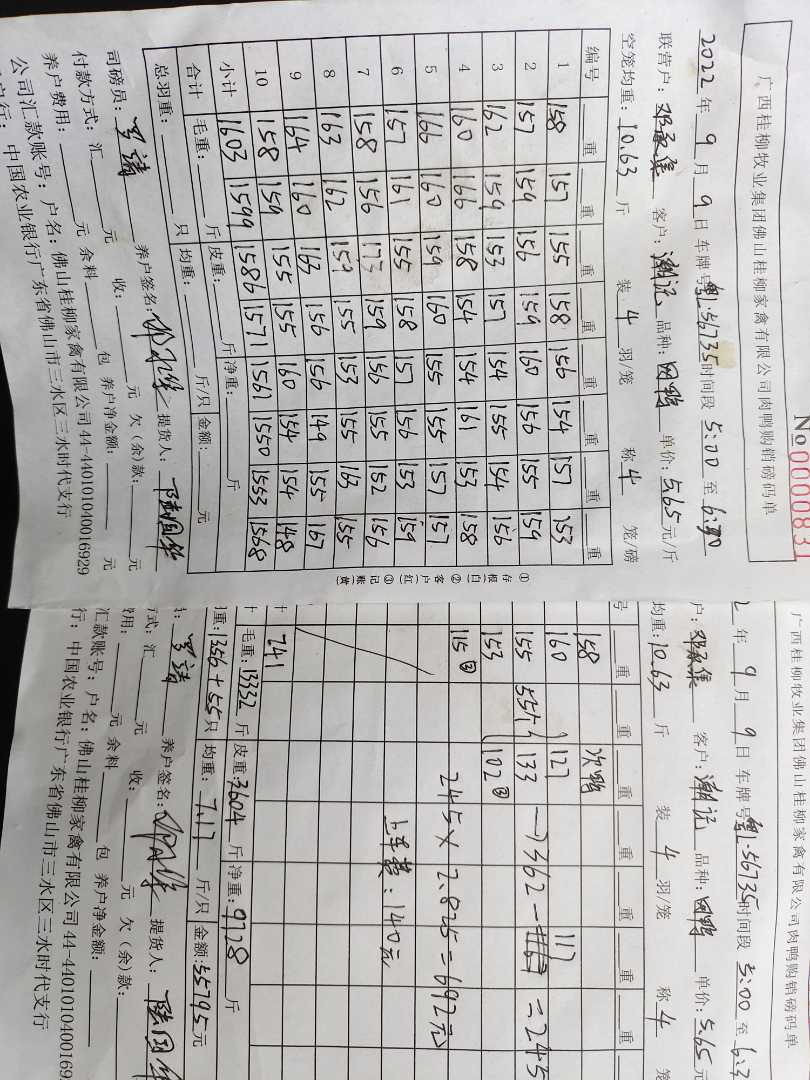 No 0000083
广西桂柳牧业集团佛山桂柳家禽有限公司肉鸭购销磅码单
2022 年 9 月 9 日 车牌号: 粤L·56735 时间段 5:00 至 6:30
联营户: 客户: 潮记 品种: 单价: 5.65 元/斤
空笼均重: 10.63 斤 装 4 羽/笼 称 4 笼/磅
编号 重 重 重 重 重 重 重 重
1 158 157 155 158 156 154 157 153
2 157 159 156 159 160 156 155 159
3 162 159 153 157 154 155 154 156
4 160 166 158 154 154 161 153 158
5 166 160 159 160 155 155 157 157
6 157 161 155 158 157 156 153 159
7 158 156 173 159 156 155 152 156
8 163 162 159 155 153 155 163 155
9 164 160 163 156 156 149 155 167
10 158 159 155 155 160 154 154 148
小计 1603 1599 1586 1571 1561 1550 1553 1568
合计 毛重: 斤 皮重: 斤 净重: 斤
总羽重: 只 均重: 斤/只 金额: 元
司磅员: 养户签名: 提货人:
付款方式: 汇 元 收: 元 欠(余)款: 元
养户费用: 元 余料 包 养户净金额: 元
公司汇款账号: 户名: 佛山桂柳家禽有限公司 44-440101040016929
户行: 中国农业银行广东省佛山市三水区三水时代支行
①存根(白) ②客户(红) ③记账(黄)
广西桂柳牧业集团佛山桂柳家禽有限公司肉鸭购销磅码单
2 年 9 月 9 日 车牌号: 粤L·56735 时间段 5:00 至 6:3
户: 客户: 潮记 品种: 单价: 5.65 元
均重: 10.63 斤 装 4 羽/笼 称 4 笼
号 重 重 重 重 重 重 重
158 次鸭
160 127 117
155 55只 133 — 362 - = 245
153 102③
115③ 245 × 2.825 = 692元
上车费: 140元
计 741
计 毛重: 13332 斤 皮重: 3604 斤 净重: 9728 斤
羽重: 1356+55 只 均重: 7.17 斤/只 金额: 55795 元
养户签名: 提货人:
式: 汇 元 收: 元 欠(余)款:
费用: 元 余料 包 养户净金额:
汇款账号: 户名: 佛山桂柳家禽有限公司 44-4401010400169
行: 中国农业银行广东省佛山市三水区三水时代支行